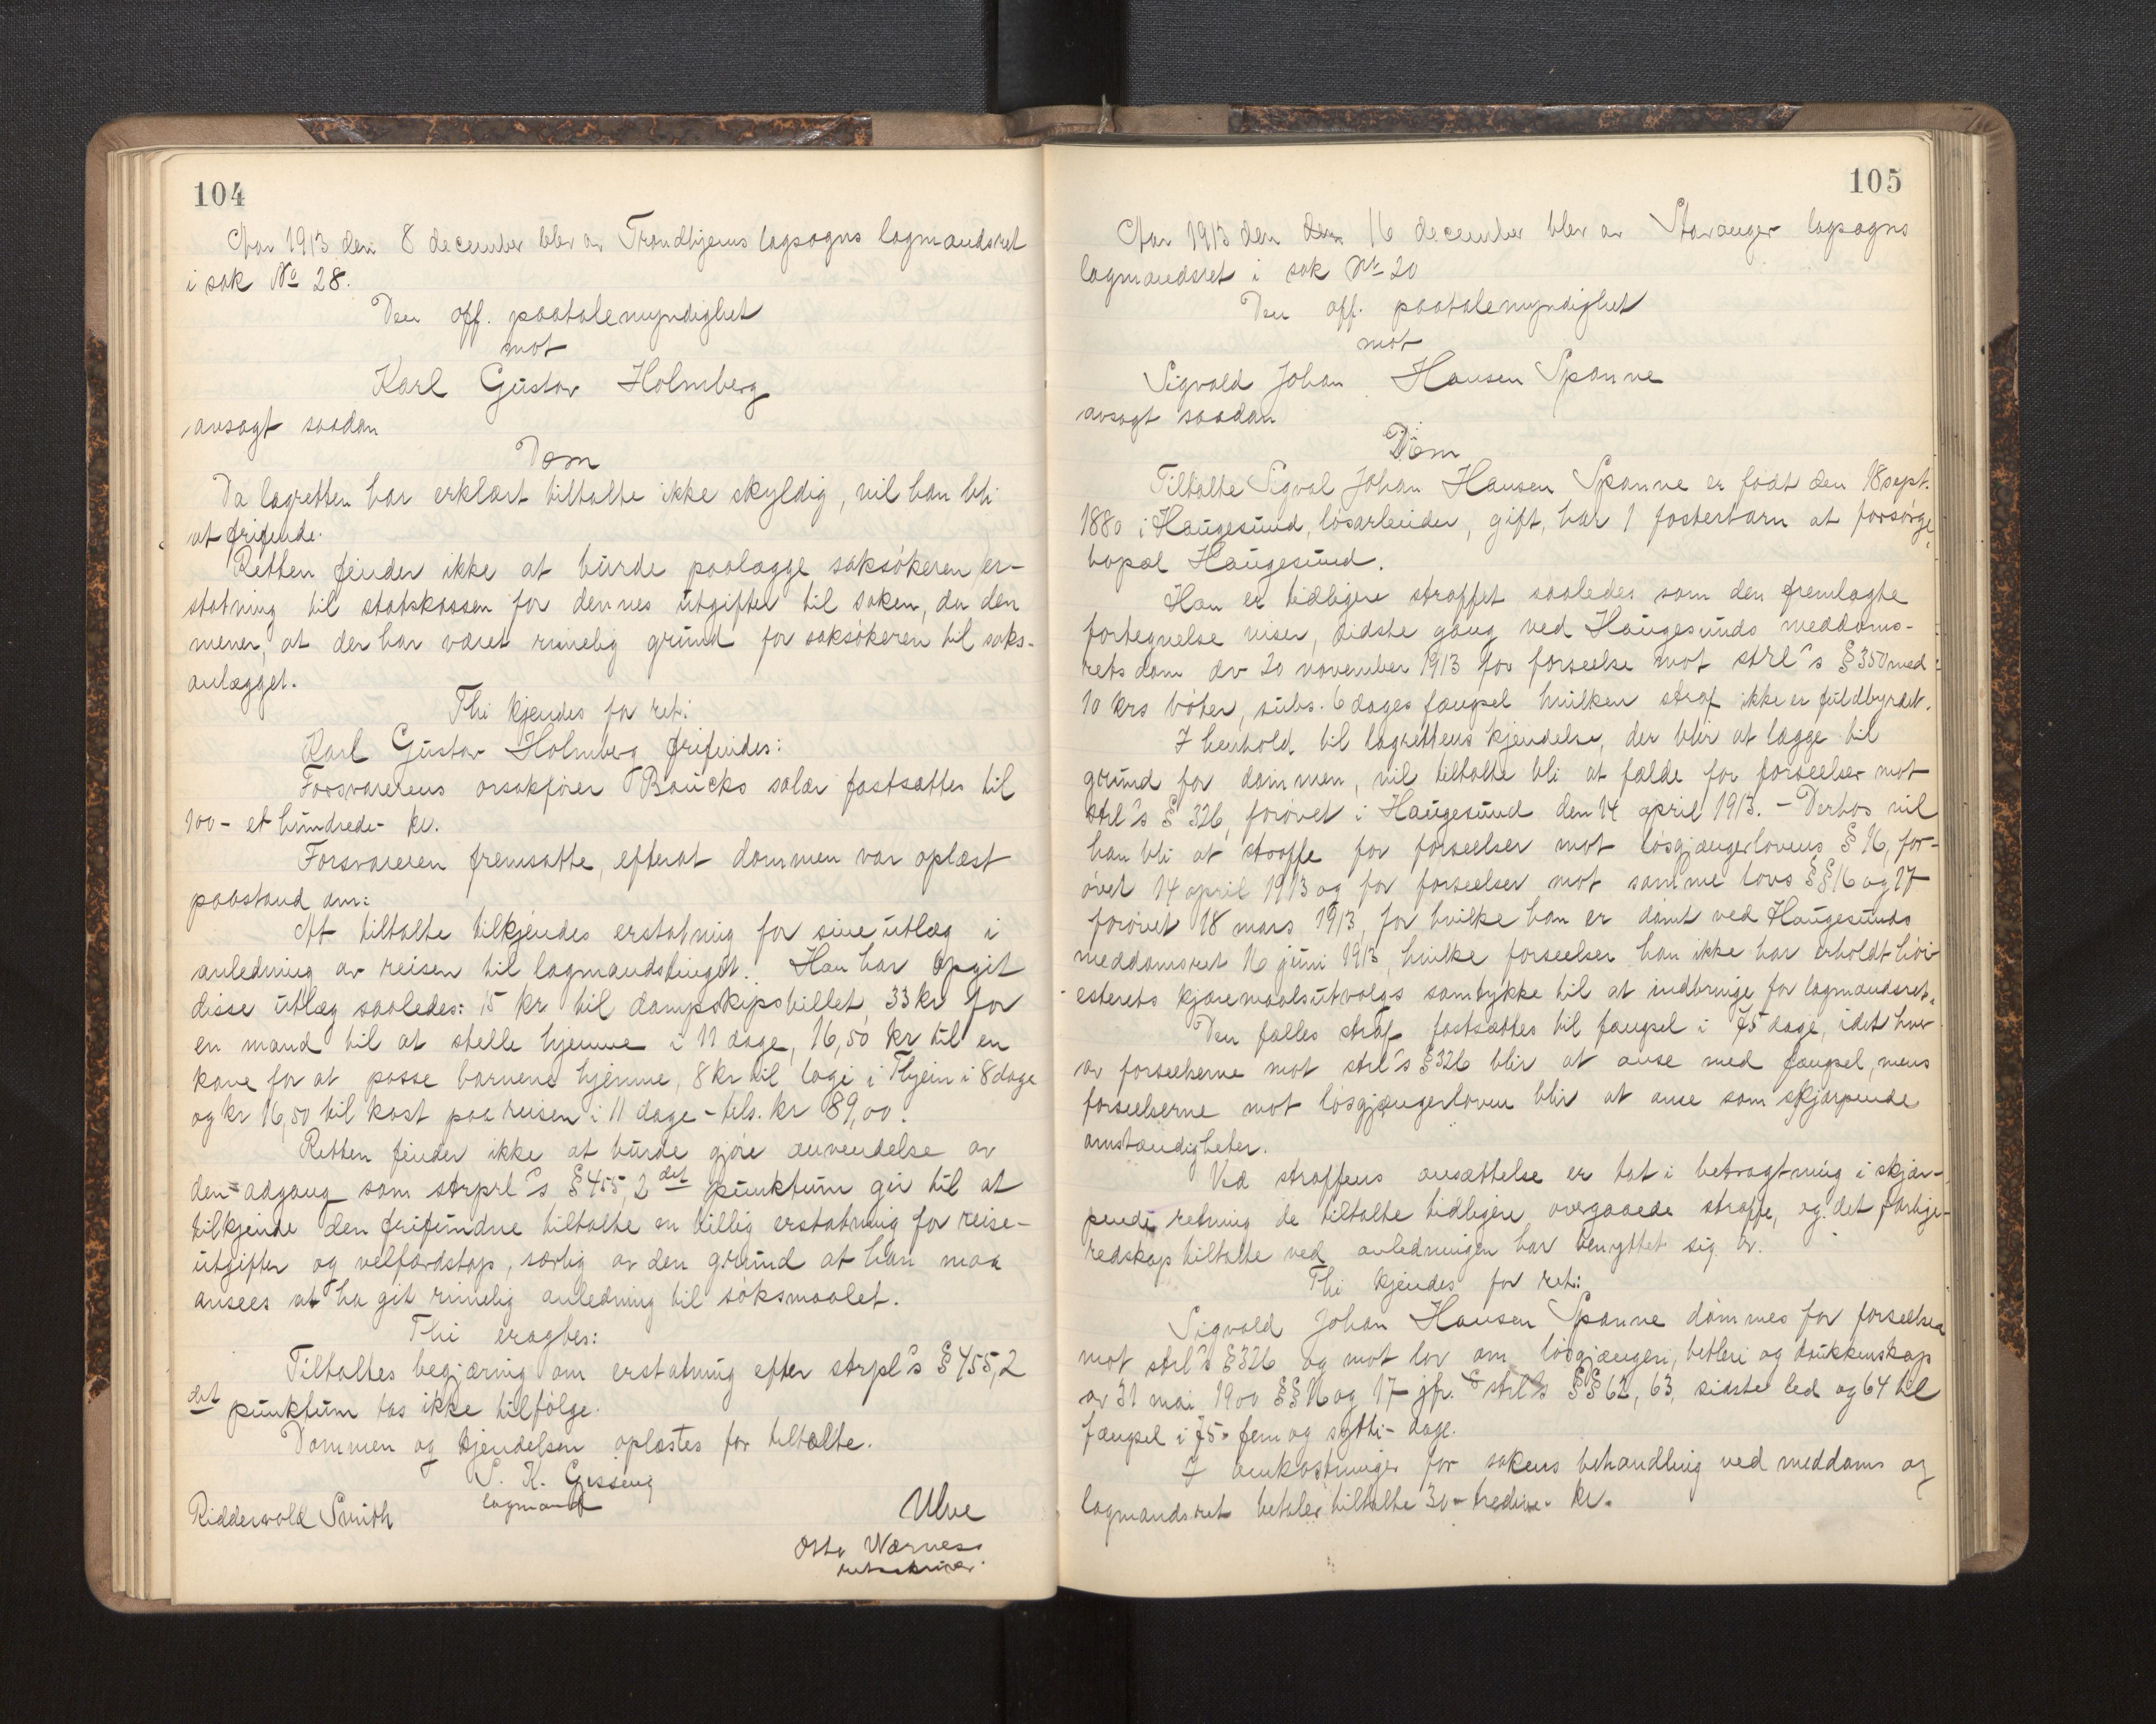 104
Aar 1913 den 8 december blev av Trondhjems lagsogns lagmandsret
i sak No 28.
Den off. paatalemyndighet
mot
Karl Gustav Holmberg
avsagt saadan
Dom
Da lagretten har erklært tiltalte ikke skyldig, vil han bli
at frifinde.
Retten finder ikke at burde paalægge saksøkeren er-
statning til statskassen for dennes utgifter til saken, da den
mener, at der har været rimelig grund for saksøkeren til saks-
anlægget.
Thi kjendes for ret:
Karl Gustav Holmberg frifindes:
Forsvarerens orsakfører Baucks salær fastsættes til
100 - et hundrede - kr.
Forsvareren fremsatte, efterat dommen var oplæst
paastand om:
At tiltalte tilkjendes erstatning for sine utlæg i
anledning av reisen til lagmandstinget. Han har opgit
disse utlæg saaledes: 15 kr til dampskipsbillet, 33 kr for
en mand til at stelle hjemme i 11 dage, 16,50 kr til en
kone for at passe barnene hjemme, 8 kr til logi i Thjem i 8 dage
og kr 16,50 til kost paa reisen i 11 dage - tils. kr 89,00.
Retten finder ikke at burde gjøre anvendelse av
den adgang som strprl's § 455, 2 det punktum gir til at
tilkjende den frifundne tiltalte en billig erstatning for reise-
utgifter og velfærdstap, særlig av den grund at han maa
ansees at ha git rimelig anledning til søksmaalet.
Thi eragtes:
Tiltaltes begjæring om erstatning efter strpl's § 455, 2
det punktum tas ikke tilfølge.
Dommen og kjendelsen oplæstes for tiltalte.
S. K. Gissing
lagmand
Ridderwold Smith
Ulve
Otto Wærness
retsskriver.
105
Aar 1913 den 16 december blev av Stavanger lagsogns
lagmandsret i sak No 20
Den off. paatalemyndighet
mot
Sigvald Johan Hansen Spanne
avsagt saadan
Dom
Tiltalte Sigval Johan Hansen Spanne er født den 18 sept.
1880 i Haugesund, løsarbeider, gift, har 1 fosterbarn at forsørge,
bopæl Haugesund.
Han er tidligere straffet saaledes som den fremlagte
fortegnelse viser, sidste gang ved Haugesunds meddoms-
rets dom av 20 november 1913 for forseelse mot strl's § 350 med
10 krs bøter, subs. 6 dages fængsel hvilken straf ikke er fuldbyrdet.
I henhold til lagrettens kjendelse, der blir at lægge til
grund for dommen, vil tiltalte bli at fælde for forseelser mot
strl's § 326, forøvet i Haugesund den 14 april 1913. - Derhos vil
han bli at straffe for forseelser mot løsgjængerlovens § 16, for-
øvet 14 april 1913 og for forseelser mot samme lovs §§ 16 og 17
forøvet 18 mars 1913, for hvilke han er dømt ved Haugesunds
meddomsret 16 juni 1913, hvilke forseelser han ikke har erholdt høi-
esterets kjæremaalsutvalgs samtykke til at indbringe for lagmandsret.
Den fælles straf fastsættes til fængsel i 75 dage, idet hver
av forseelserne mot strl's § 326 blir at anse med fængsel, mens
forseelserne mot løsgjængerloven blir at anse som skjærpende
omstændigheter.
Ved straffens ansættelse er tat i betragtning i skjær-
pende retning de tiltalte tidligere overgaaede straffe, og det farlige
redskap tiltalte ved anledningen har benyttet sig av.
Thi kjendes for ret:
Sigvald Johan Hansen Spanne dømmes for forseelser
mot strl's § 326 og mot lov om løsgjængeri, betleri og drukkenskap
av 31 mai 1900 §§ 16 og 17 jfr. strl's §§ 62, 63, sidste led og 64 til
fængsel i 75 - fem og sytti - dage.
I omkostninger for sakens behandling ved meddoms og
lagmandsret betaler tiltalte 30 - tredive - kr.